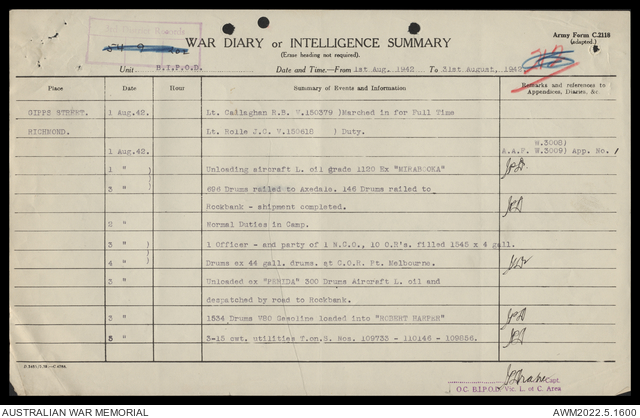 Army Form C.2118
(adapted.)
WAR DIARY or INTELLIGENCE SUMMARY
(Erase heading not required).
Unit B.I.P.O.D. Date and Time—From 1st Aug. 1942 To 31st August, 1942
Place Date Hour Summary of Events and Information Remarks and references to Appendices, Diaries, &c.
GIPPS STREET. 1 Aug.42. Lt. Callaghan H.B. V.150379 )Marched in for Full Time
RICHMOND. Lt. Rolle J.G. V.159618 ) Duty.
W.3008)
1 Aug.42. A.A.F. W.3009) App. No. 1
1 " ) Unloading aircraft L. oil grade 1120 Ex "MIRABOOKA"
3 " ) 696 Drums railed to Axedale. 146 Drums railed to
Rockbank - shipment completed.
2 " Normal Duties in Camp.
3 " ) 1 Officer - and party of 1 N.C.O., 10 O.R's. filled 1545 x 4 gall.
4 " ) Drums ex 44 gall. drums. at C.O.R. Pt. Melbourne.
3 " Unloaded ex "PERIDA" 300 Drums Aircraft L. oil and
despatched by road to Rockbank.
3 " 1534 Drums V80 Gasoline loaded into "ROBERT HARPER"
3 " 3-15 cwt. utilities T.on.S. Nos. 109733 - 110146 - 109856.
Capt.
OC. B.I.P.O.D. Vic. L. of C. Area
AUSTRALIAN WAR MEMORIAL AWM2022.5.1600